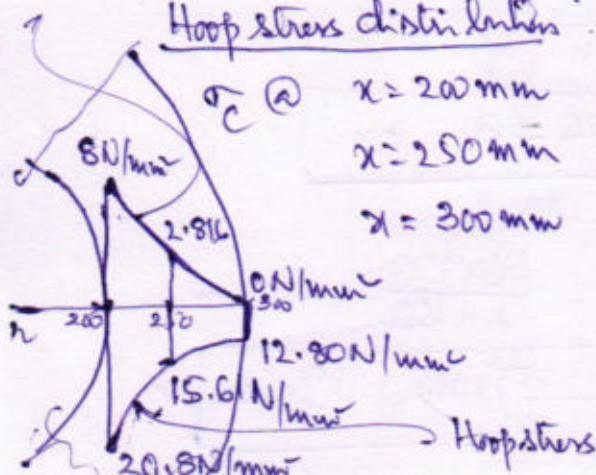 Hoop stress distribution
σc @ x = 200 mm
x = 250 mm
x = 300 mm
8N/mm²
2.816
0N/mm²
200 250 300
12.80N/mm²
15.61N/mm²
Hoop stress
20.8N/mm²